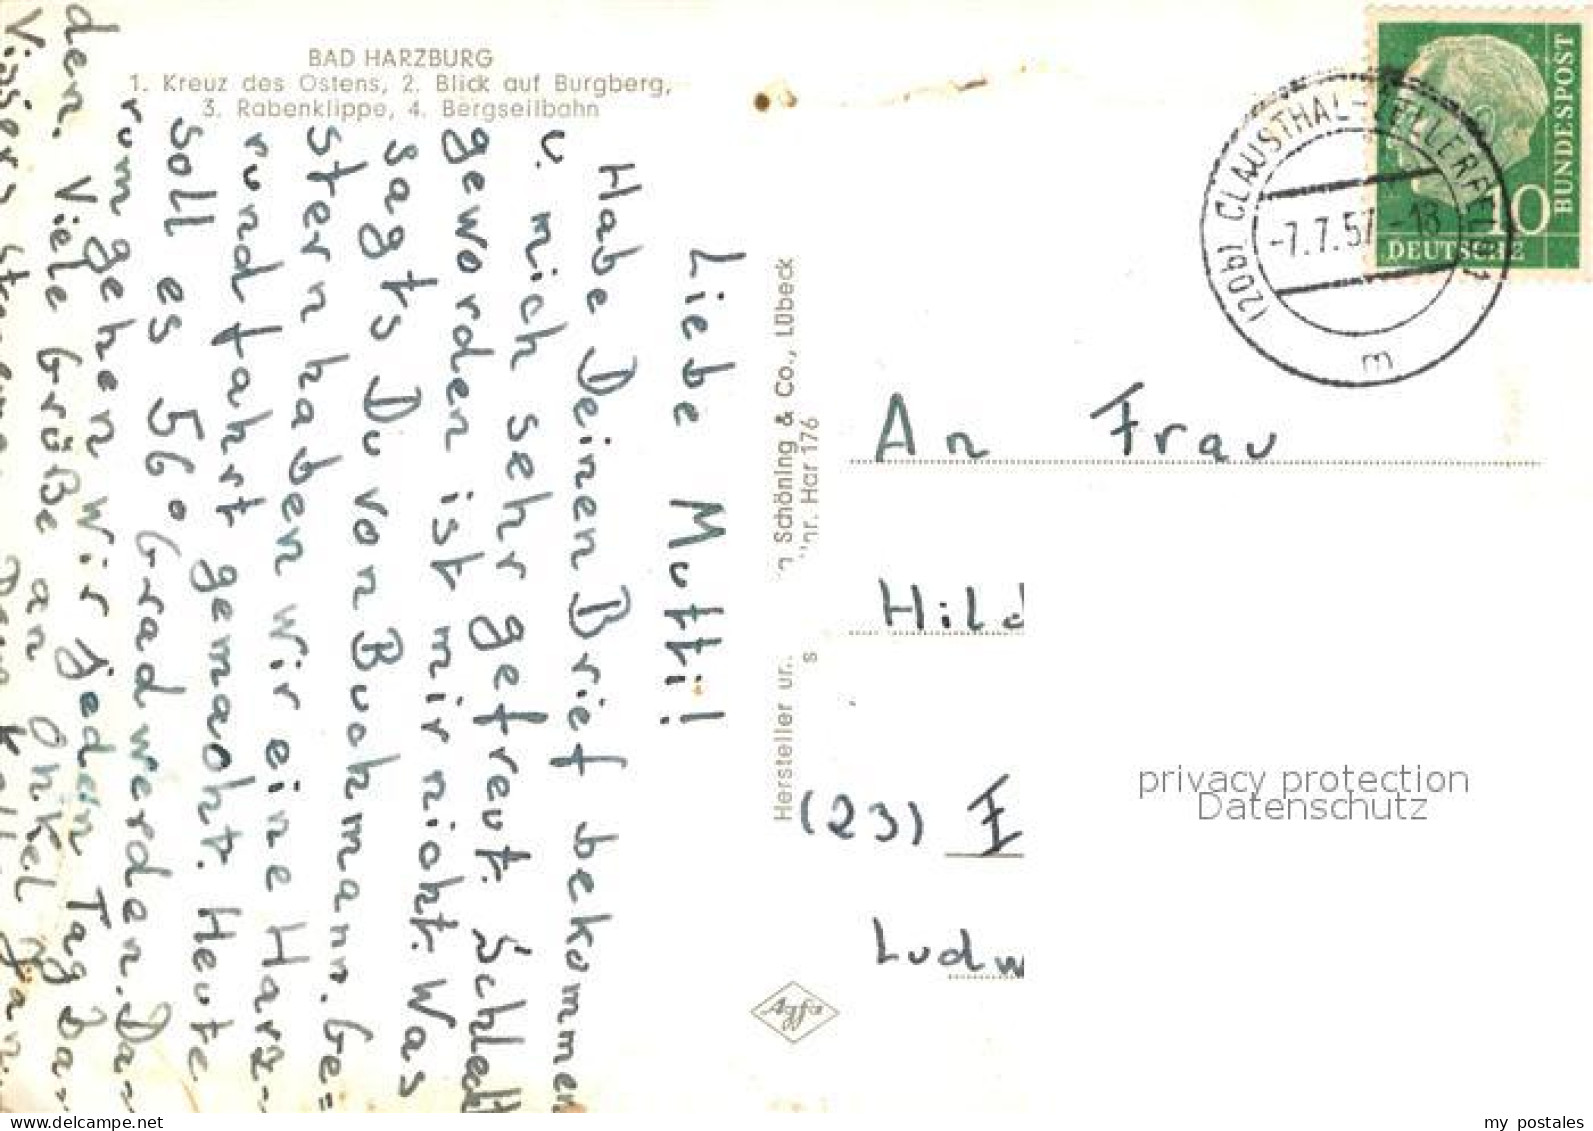 BAD HARZBURG
1. Kreuz des Ostens, 2. Blick auf Burgberg,
3. Rabenklippe, 4. Bergseilbahn
Liebe Mutti!
Habe Deinen Brief bekommen
u. mich sehr gefreut. Schlecht
geworden ist mir nicht. Was
sagts Du von Buchmann. Ge=
stern haben wir eine Harz-
rundfahrt gemacht. Heute
soll es 56° Grad werden. Da-
rum gehen wir jeden Tag Ba-
den. Viele Grüße an Onkel
Schöning & Co., Lübeck
nr. Har 176
Hersteller
s
BUNDESPOST
10
DEUTSCHE
(20b) CLAUSTHAL-ZELLERFELD 1
-7.7.57.-18
m
An Frau
Hild
(23)
Ludw
Agfa
privacy protection
Datenschutz
www.ansichtskarten-center.de
my postales